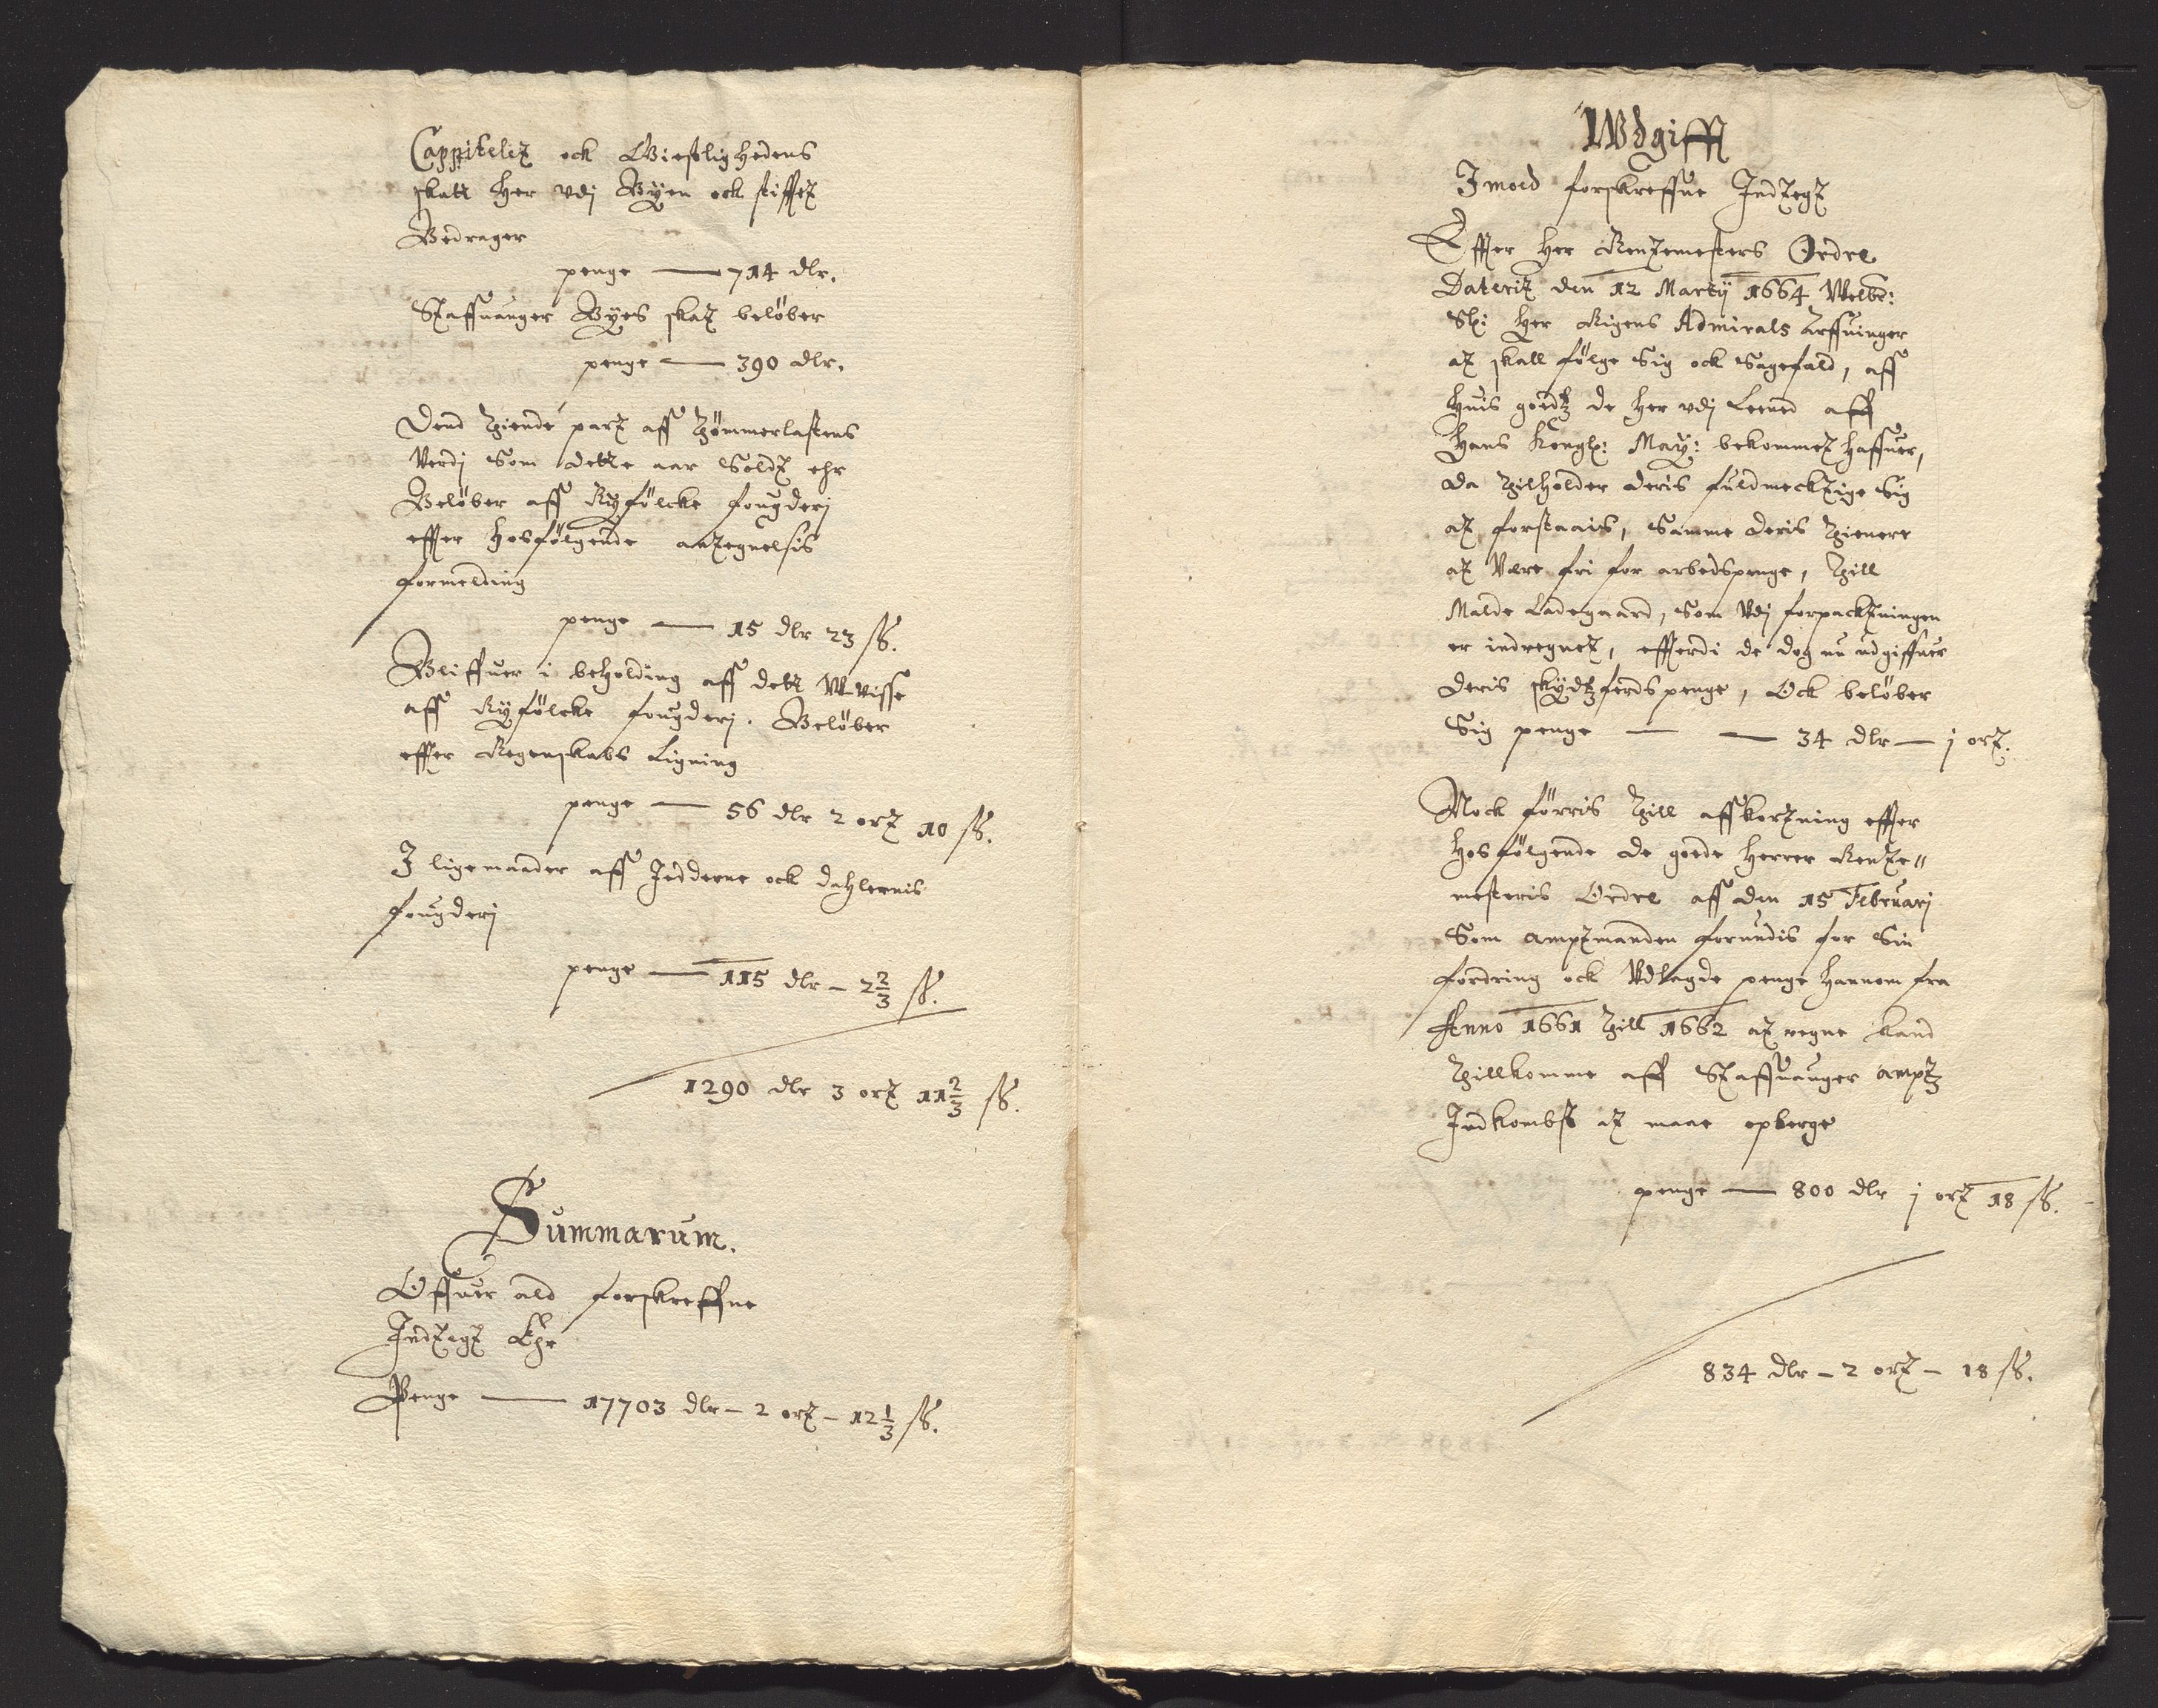 Cappitelet ock Gieistlighedens
skatt her vdj Byen ock stifftet
Bedrager
penge — 714 dlr.
Staffuanger Byes skat belöber
penge — 390 dlr.
Dend tiende part aff Tömmerlastens
Verdj Som dette aar Soldt ehr
Belöber aff Ryfölcke fougderj
effter hosfölgende antegnelsis
formelding
penge — 15 dlr 23 ß.
Bliffuer i beholding aff dett Wuisse
aff Ryfölcke fougderj. Belöber
effter Regenskabs Ligning
penge — 56 dlr 2 ort 10 ß.
I ligemaader aff Jedderne ock Dahlernis
fougderj
penge — 115 dlr – 2 2/3 ß.
1290 dlr 3 ort 11 2/3 ß.
Summarum.
Offuer ald forskreffne
Indtegt Ehr
Penge — 17703 dlr – 2 ort – 12 1/3 ß.
Wdgifft
Imod forskreffne Indtegt
Effter Her Rentemesters Ordre
Daterit den 12 Martij 1664 Welb:
Sl: Her Rigens Admirals Arffuinger
at skall fölge Sig ock Sagefald, aff
huis goedtz de her vdj Leened aff
Hans Kongl: May: bekommet haffuer,
da tilholder deris fuldmechtige Sig
at forstaais, Samme deris tienere
at Være fri for arbedspenge, till
Malde Ladegaard, Som Vdj forpachtningen
er indregnet, effterdi de dog nu udgiffuer
deris skydtzferdspenge, Ock belöber
Sig penge — — 34 dlr — j ort.
Nock förris till affkortning effter
hosfölgende de goede Herrer Rente„
mesteris Ordre aff den 15 Februarj
Som amptmanden forundis for Sin
fordring ock Vdlagde penge hannem fra
Anno 1661 till 1662 at regne kand
tillkomme aff Staffuanger amptz
Indkombst at maae opberge
penge — 800 dlr j ort 18 ß.
834 dlr – 2 ort – 18 ß.